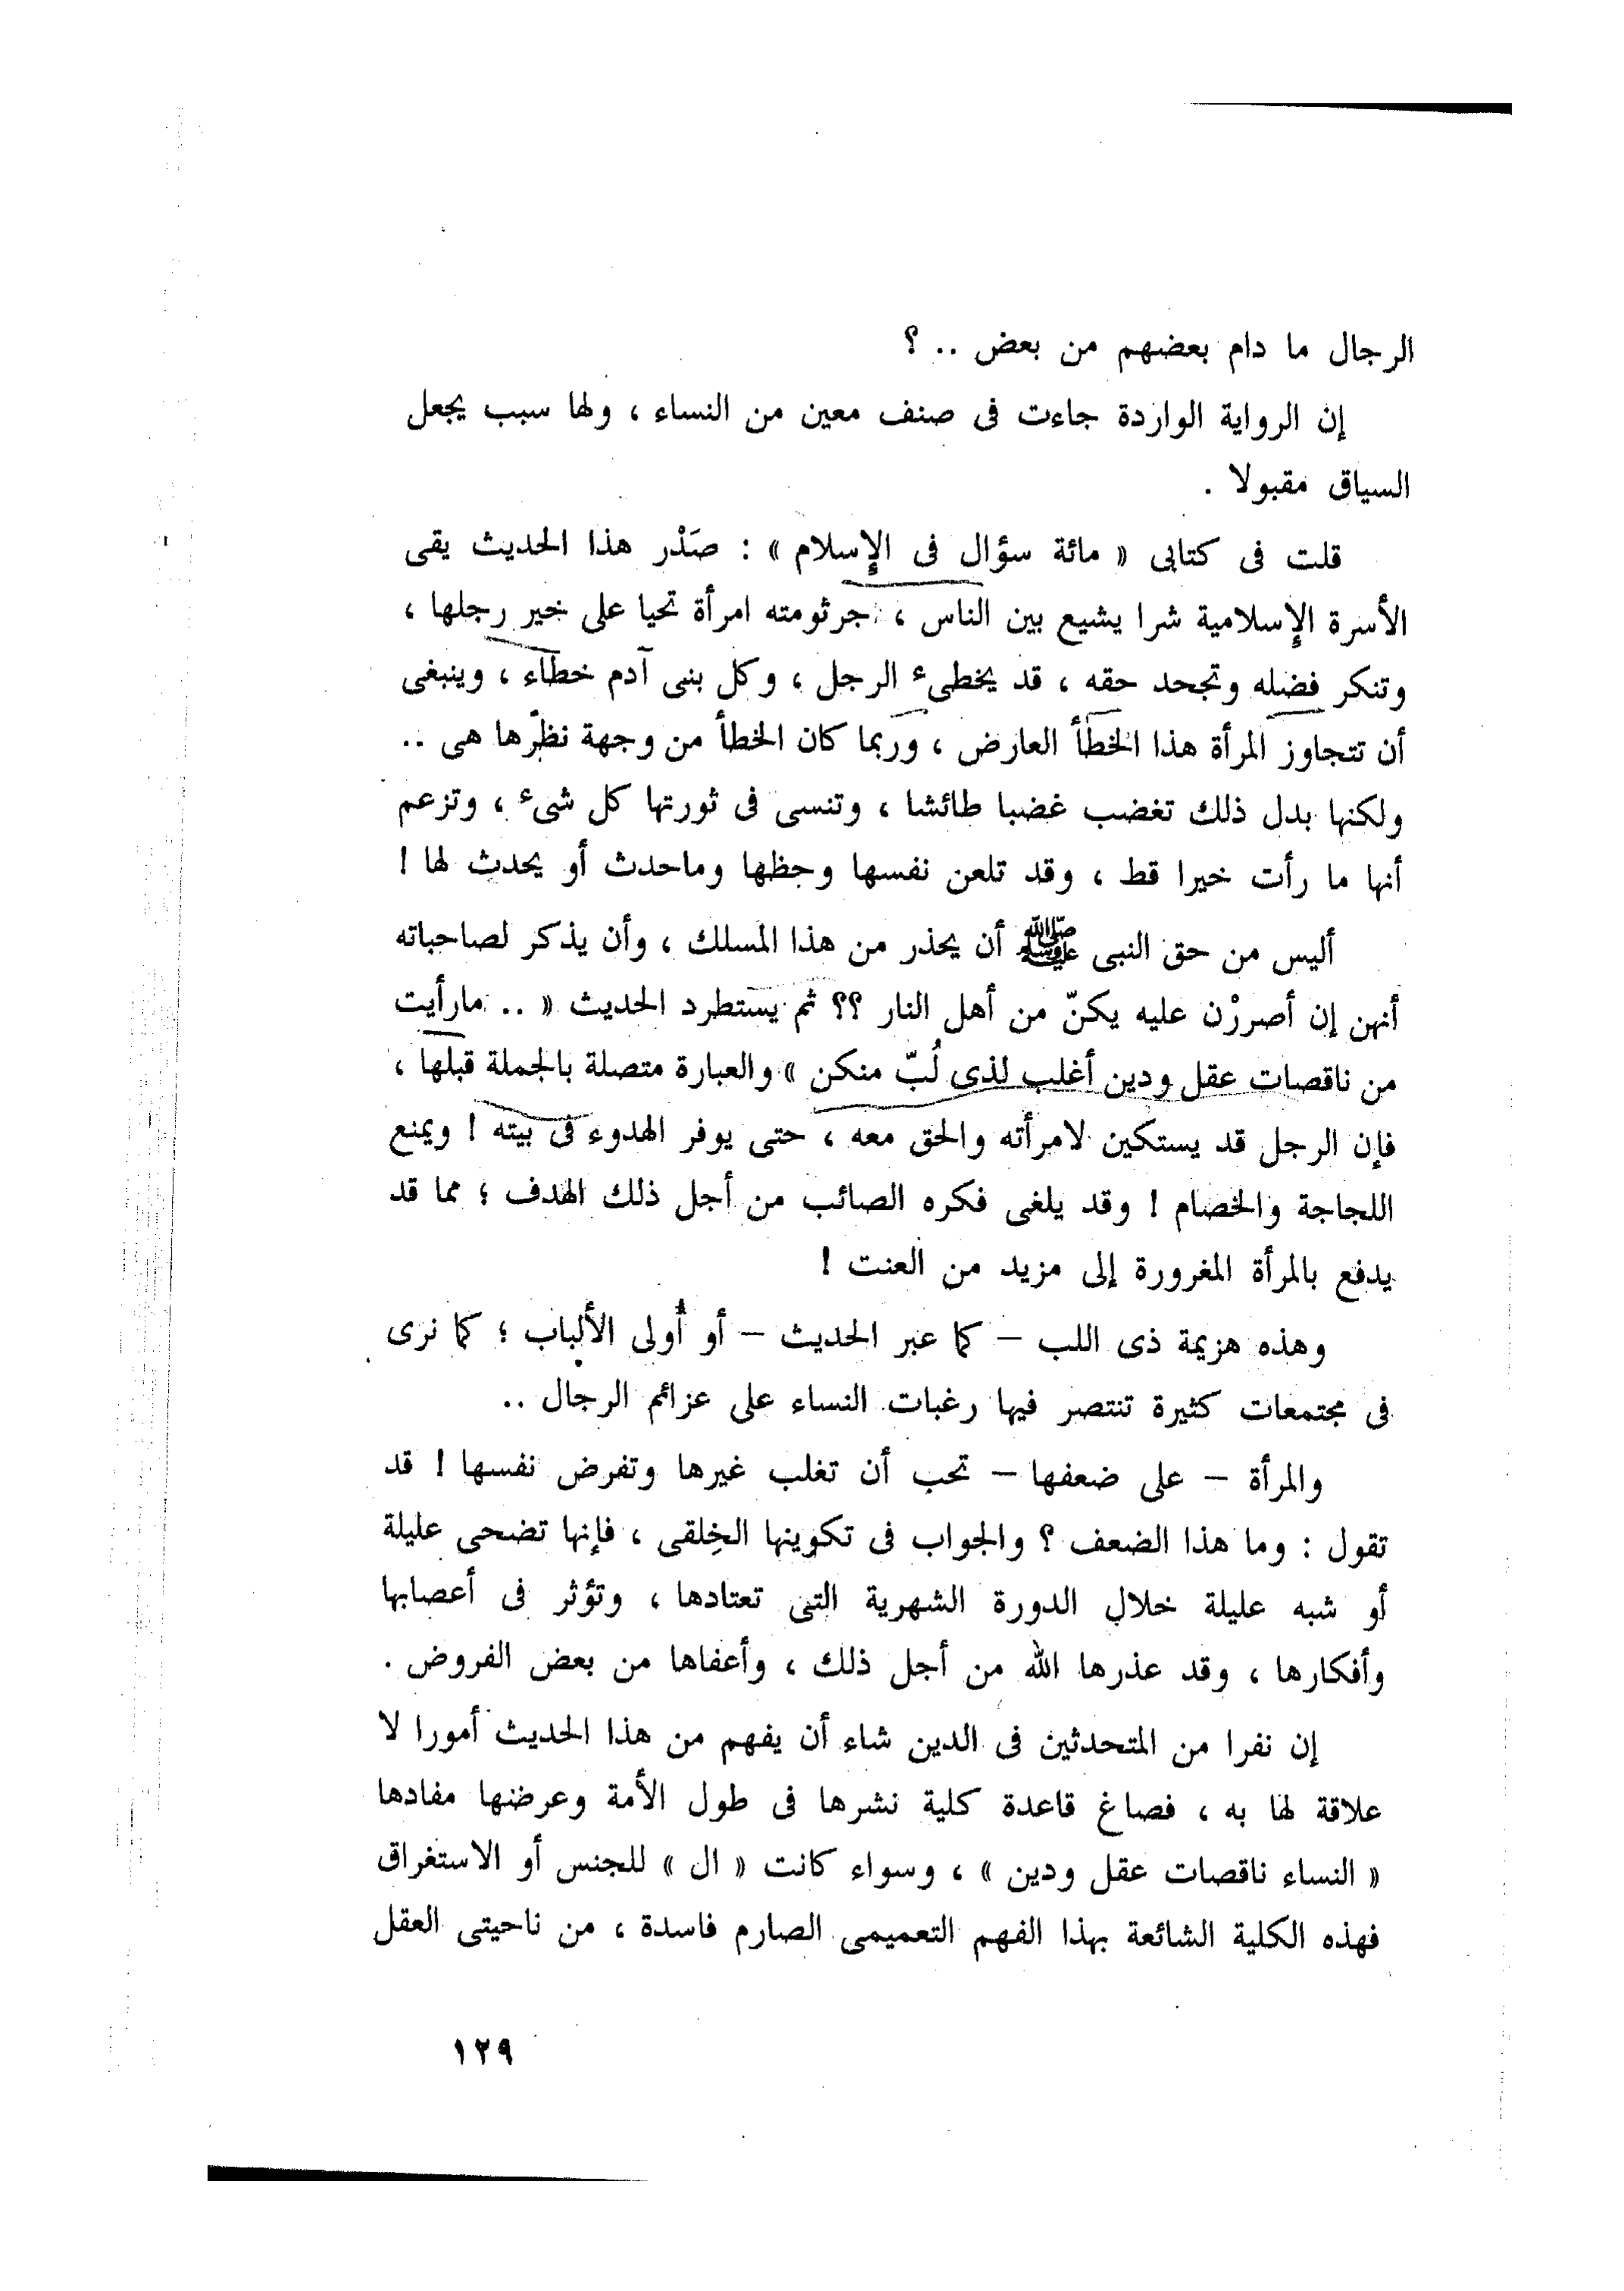 الرجال ما دام بعضهم من بعض .. ؟
إن الرواية الواردة جاءت فى صنف معين من النساء ، ولها سبب يجعل
السياق مقبولا .
قلت فى كتابى « مائة سؤال فى الإسلام » : صَدْر هذا الحديث يقى
الأسرة الإسلامية شرا يشيع بين الناس ، جرثومته امرأة تحيا على خير رجلها ،
وتنكر فضله وتجحد حقه ، قد يخطىء الرجل ، وكل بنى آدم خطاء ، وينبغى
أن تتجاوز المرأة هذا الخطأ العارض ، وربما كان الخطأ من وجهة نظرها هى ..
ولكنها بدل ذلك تغضب غضبا طائشا ، وتنسى فى ثورتها كل شىء ، وتزعم
أنها ما رأت خيرا قط ، وقد تلعن نفسها وحظها وماحدث أو يحدث لها !
أليس من حق النبى ﷺ أن يحذر من هذا المسلك ، وأن يذكر لصاحباته
أنهن إن أصررْن عليه يكنّ من أهل النار ؟؟ ثم يستطرد الحديث « .. مارأيت
من ناقصات عقل ودين أغلب لذى لُبّ منكن » والعبارة متصلة بالجملة قبلها ،
فإن الرجل قد يستكين لامرأته والحق معه ، حتى يوفر الهدوء فى بيته ! ويمنع
اللجاجة والخصام ! وقد يلغى فكره الصائب من أجل ذلك الهدف ؛ مما قد
يدفع بالمرأة المغرورة إلى مزيد من العنت !
وهذه هزيمة ذى اللب – كما عبر الحديث – أو أُولى الألباب ؛ كما نرى
فى مجتمعات كثيرة تنتصر فيها رغبات النساء على عزائم الرجال ..
والمرأة – على ضعفها – تحب أن تغلب غيرها وتفرض نفسها ! قد
تقول : وما هذا الضعف ؟ والجواب فى تكوينها الخِلقى ، فإنها تضحى عليلة
أو شبه عليلة خلال الدورة الشهرية التى تعتادها ، وتؤثر فى أعصابها
وأفكارها ، وقد عذرها الله من أجل ذلك ، وأعفاها من بعض الفروض .
إن نفرا من المتحدثين فى الدين شاء أن يفهم من هذا الحديث أمورا لا
علاقة لها به ، فصاغ قاعدة كلية نشرها فى طول الأمة وعرضها مفادها
« النساء ناقصات عقل ودين » ، وسواء كانت « ال » للجنس أو الاستغراق
فهذه الكلية الشائعة بهذا الفهم التعميمى الصارم فاسدة ، من ناحيتى العقل
١٢٩